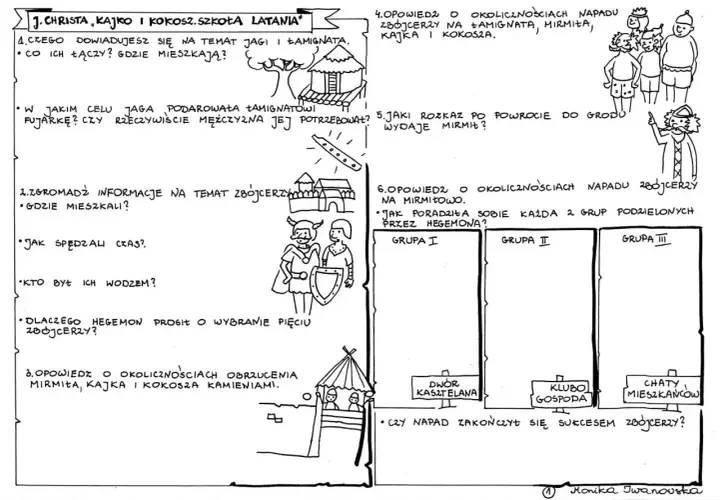 J. CHRISTA „KAJKO I KOKOSZ. SZKOŁA LATANIA"
1. CZEGO DOWIADUJESZ SIĘ NA TEMAT JAGI I ŁAMIGNATA.
• CO ICH ŁĄCZY? GDZIE MIESZKAJĄ?
• W JAKIM CELU JAGA PODAROWAŁA ŁAMIGNATOWI
FUJARKĘ? CZY RZECZYWIŚCIE MĘŻCZYZNA JEJ POTRZEBOWAŁ?
2. ZGROMADŹ INFORMACJE NA TEMAT ZBÓJCERZY
• GDZIE MIESZKALI?
• JAK SPĘDZALI CZAS?
• KTO BYŁ ICH WODZEM?
• DLACZEGO HEGEMON PROSIŁ O WYBRANIE PIĘCIU
ZBÓJCERZY?
3. OPOWIEDZ O OKOLICZNOŚCIACH OBRZUCENIA
MIRMIŁA, KAJKA I KOKOSZA KAMIENIAMI.
4. OPOWIEDZ O OKOLICZNOŚCIACH NAPADU
ZBÓJCERZY NA ŁAMIGNATA, MIRMIŁA,
KAJKA I KOKOSZA.
5. JAKI ROZKAZ PO POWROCIE DO GRODU
WYDAJE MIRMIŁ?
6. OPOWIEDZ O OKOLICZNOŚCIACH NAPADU ZBÓJCERZY
NA MIRMIŁOWO.
• JAK PORADZIŁA SOBIE KAŻDA Z GRUP PODZIELONYCH
PRZEZ HEGEMONA?
GRUPA I
GRUPA II
GRUPA III
DWÓR
KASZTELANA
KLUBO
GOSPODA
CHATY
MIESZKAŃCÓW
• CZY NAPAD ZAKOŃCZYŁ SIĘ SUKCESEM ZBÓJCERZY?
1 Monika Iwanowska